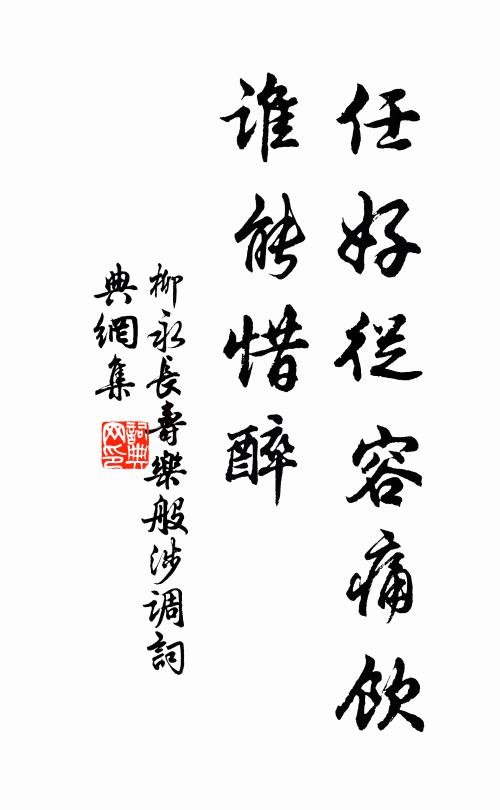 任好從容痛飲
誰能惜醉
柳永長壽樂般涉调詞
典網集
詞典
网印